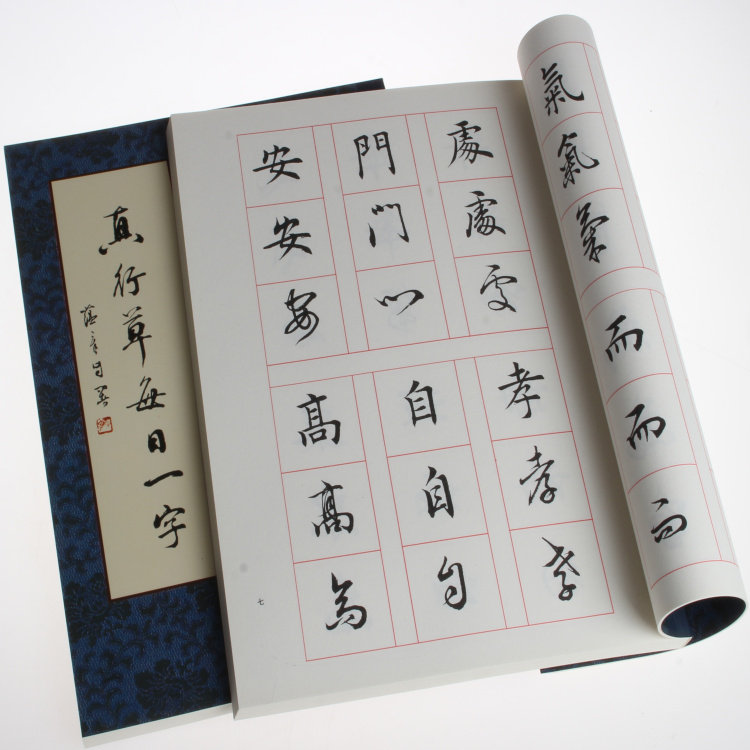 真行草每日一字
氣氣氣
而而而
處處處
門門門
安安安
孝孝孝
自自自
髙髙髙
七